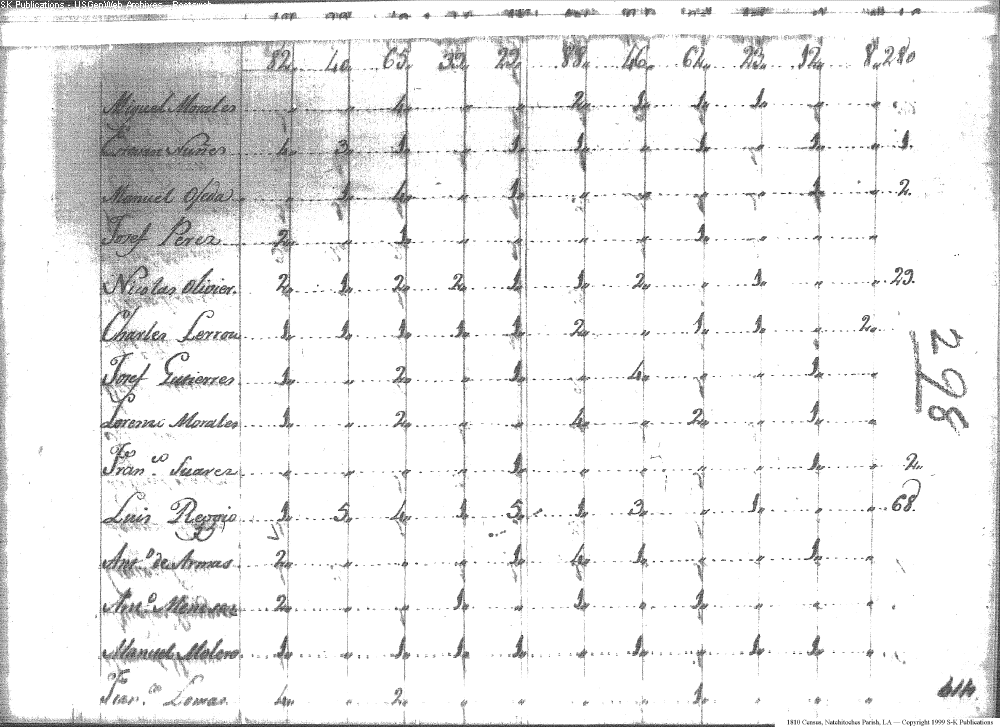 S-K Publications - USGenWeb Archives -
82 40 65 33 22 88 46 62 23 12 8 280
Miguel Morales " " 4 " " 2 1 1 1 " " "
Nuñes 4 3 1 " 1 1 " 1 " 1 " 1
Manuel Ojeda " 1 4 " 1 " " " " 1 " 2
Josef Perez 2 " 1 " " " " 1 " " "
Nicolas Olivier 2 1 2 2 1 1 2 " 1 " " 23
Charles Lerrou 1 1 1 1 1 2 " 1 1 " 2
Josef Gutierres 1 " 2 " 1 " 4 " " 1 "
298
Lorenzo Morales 1 " 2 " " 4 " 2 " 1 "
Fran.co Suarez " " " " 1 " " " " 1 " 2
Luis Reggio 1 5 4 1 5 1 3 " 1 " " 68
Ant.o de Armas 2 " " " 1 4 1 " " 1 "
Ant.o 2 " " 1 " 1 " 1 " " "
Manuel Molero 1 " 1 1 1 " 1 " 1 1 "
Fran.co Lemas 4 " 2 " " " " 1 " " "
1810 Census, Natchitoches Parish, LA — Copyright 1999 S-K Publications